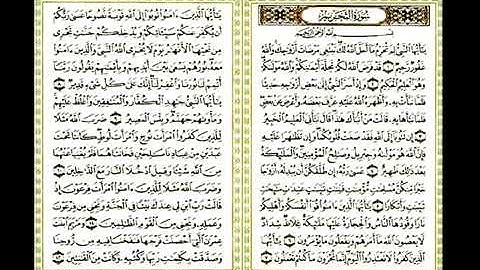 سورة التحريم
بسم الله الرحمن الرحيم
يأيها النبي لم تحرم ما أحل الله لك تبتغي مرضات أزوجك والله
غفور رحيم ١ قد فرض الله لكم تحلة أيمنكم والله مولىكم
وهو العليم الحكيم ٢ وإذ أسر النبي إلى بعض أزوجه حديثا
فلما نبأت به وأظهره الله عليه عرف بعضه وأعرض عن بعض
فلما نبأها به قالت من أنبأك هذا قال نبأني العليم الخبير
٣ إن تتوبا إلى الله فقد صغت قلوبكما وإن تظهرا عليه
فإن الله هو مولىه وجبريل وصلح المؤمنين والملئكة
بعد ذلك ظهير ٤ عسى ربه إن طلقكن أن يبدله أزوجا
خيرا منكن مسلمت مؤمنت قنتت تئبت عبدت سئحت
ثيبت وأبكارا ٥ يأيها الذين ءامنوا قوا أنفسكم وأهليكم
نارا وقودها الناس والحجارة عليها ملئكة غلاظ شداد
لا يعصون الله ما أمرهم ويفعلون ما يؤمرون ٦ يأيها
الذين كفروا لا تعتذروا اليوم إنما تجزون ما كنتم تعملون ٧
يأيها الذين ءامنوا توبوا إلى الله توبة نصوحا عسى ربكم
أن يكفر عنكم سيئاتكم ويدخلكم جنت تجري
من تحتها الأنهر يوم لا يخزي الله النبي والذين ءامنوا
معه نورهم يسعى بين أيديهم وبأيمنهم يقولون ربنا
أتمم لنا نورنا واغفر لنا إنك على كل شيء قدير ٨
يأيها النبي جهد الكفار والمنفقين واغلظ عليهم
ومأوىهم جهنم وبئس المصير ٩ ضرب الله مثلا
للذين كفروا امرأت نوح وامرأت لوط كانتا تحت
عبدين من عبادنا صلحين فخانتاهما فلم يغنيا عنهما
من الله شيئا وقيل ادخلا النار مع الدخلين ١٠
وضرب الله مثلا للذين ءامنوا امرأت فرعون إذ
قالت رب ابن لي عندك بيتا في الجنة ونجني من فرعون
وعمله ونجني من القوم الظلمين ١١ ومريم ابنت
عمرن التي أحصنت فرجها فنفخنا فيه من روحنا
وصدقت بكلمت ربها وكتبه وكانت من القنتين ١٢